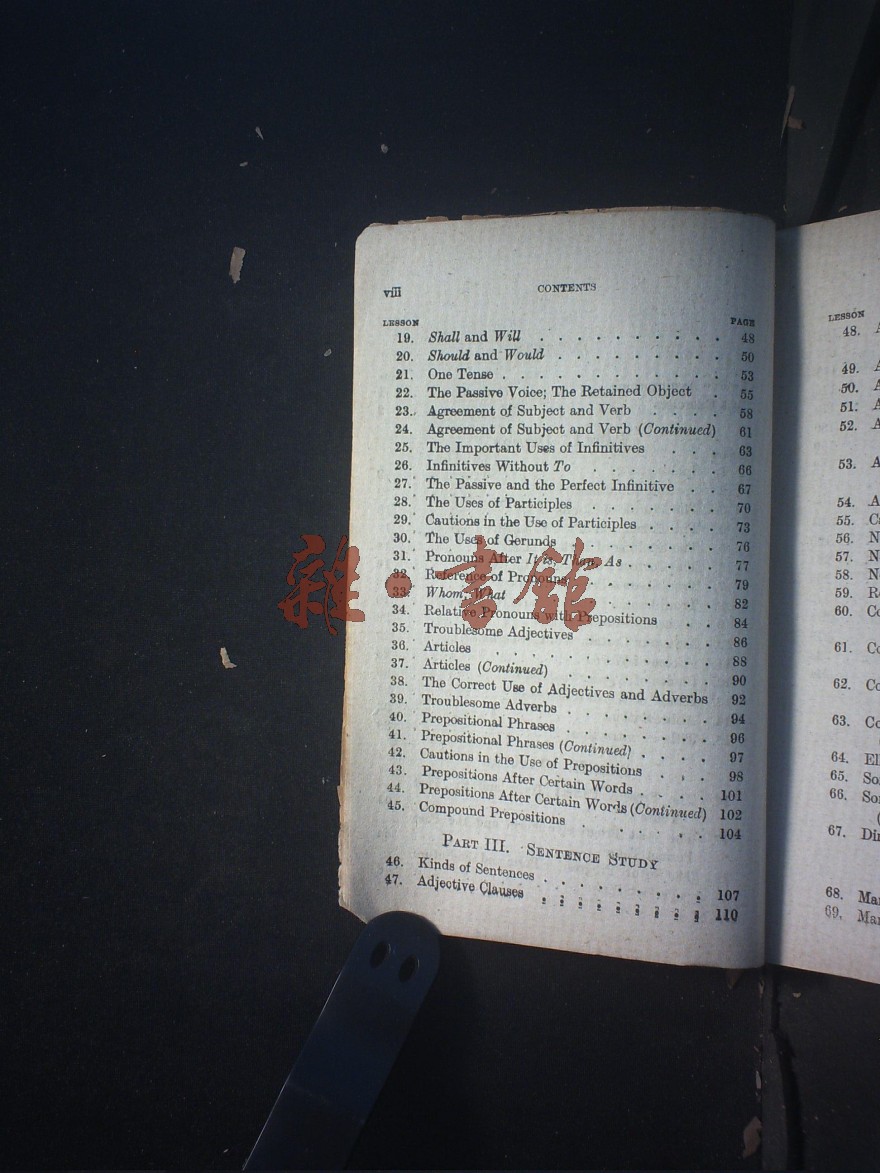 viii CONTENTS
LESSON PAGE
19. Shall and Will . . . . . . . . . . 48
20. Should and Would . . . . . . . . . 50
21. One Tense . . . . . . . . . . . . 53
22. The Passive Voice; The Retained Object . 55
23. Agreement of Subject and Verb . . . . 58
24. Agreement of Subject and Verb (Continued) 61
25. The Important Uses of Infinitives . . . 63
26. Infinitives Without To . . . . . . . 66
27. The Passive and the Perfect Infinitive . . 67
28. The Uses of Participles . . . . . . . 70
29. Cautions in the Use of Participles . . . . 73
30. The Uses of Gerunds . . . . . . . 76
31. Pronouns After It is, Than, As . . . . . 77
32. Reference of Pronouns . . . . . . . 79
33. Whom, What . . . . . . . . . 82
34. Relative Pronouns with Prepositions . . 84
35. Troublesome Adjectives . . . . . . 86
36. Articles . . . . . . . . . . 88
37. Articles (Continued) . . . . . . . 90
38. The Correct Use of Adjectives and Adverbs 92
39. Troublesome Adverbs . . . . . . . 94
40. Prepositional Phrases . . . . . . . 96
41. Prepositional Phrases (Continued) . . . . 97
42. Cautions in the Use of Prepositions . . . 98
43. Prepositions After Certain Words . . . . 101
44. Prepositions After Certain Words (Continued) 102
45. Compound Prepositions . . . . . . 104
PART III. SENTENCE STUDY
46. Kinds of Sentences . . . . . . . . . 107
47. Adjective Clauses . . . . . . . . . 110
雜·書館
LESSON
48. A
49. A
50. A
51. A
52. A
53. A
54. A
55. Ca
56. N
57. N
58. N
59. R
60. Co
61. Co
62. Co
63. Co
64. El
65. So
66. Sor
(
67. Dir
68. Ma
69. Mar